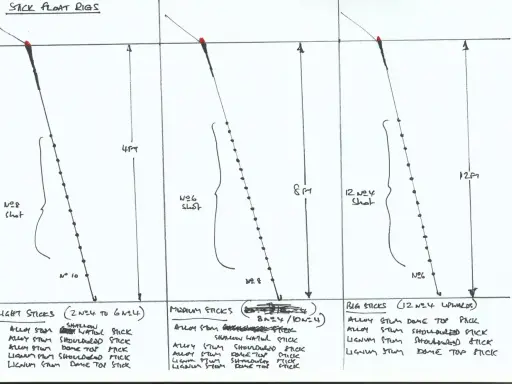 STICK FLOAT RIGS
4FT
Nº8
Shot
Nº 10
8FT
Nº6
Shot
Nº 8
12FT
12 Nº4
Shot
Nº6
LIGHT STICKS (2 Nº4 TO 6 Nº4)
SHALLOW
ALLOY STEM WATER STICK
ALLOY STEM SHOULDERED STICK
ALLOY STEM DOME TOP STICK
LIGNUM STEM SHOULDERED STICK
LIGNUM STEM DOME TOP STICK
MEDIUM STICKS
8 Nº4 / 10 Nº4)
ALLOY STEM STICK
SHALLOW WATER STICK
ALLOY STEM SHOULDERED STICK
ALLOY STEM DOME TOP STICK
LIGNUM STEM SHOULDERED STICK
LIGNUM STEM DOME TOP STICK
BIG STICKS (12 Nº4 UPWARDS)
ALLOY STEM DOME TOP STICK
ALLOY STEM SHOULDERED STICK
LIGNUM STEM SHOULDERED STICK
LIGNUM STEM DOME TOP STICK